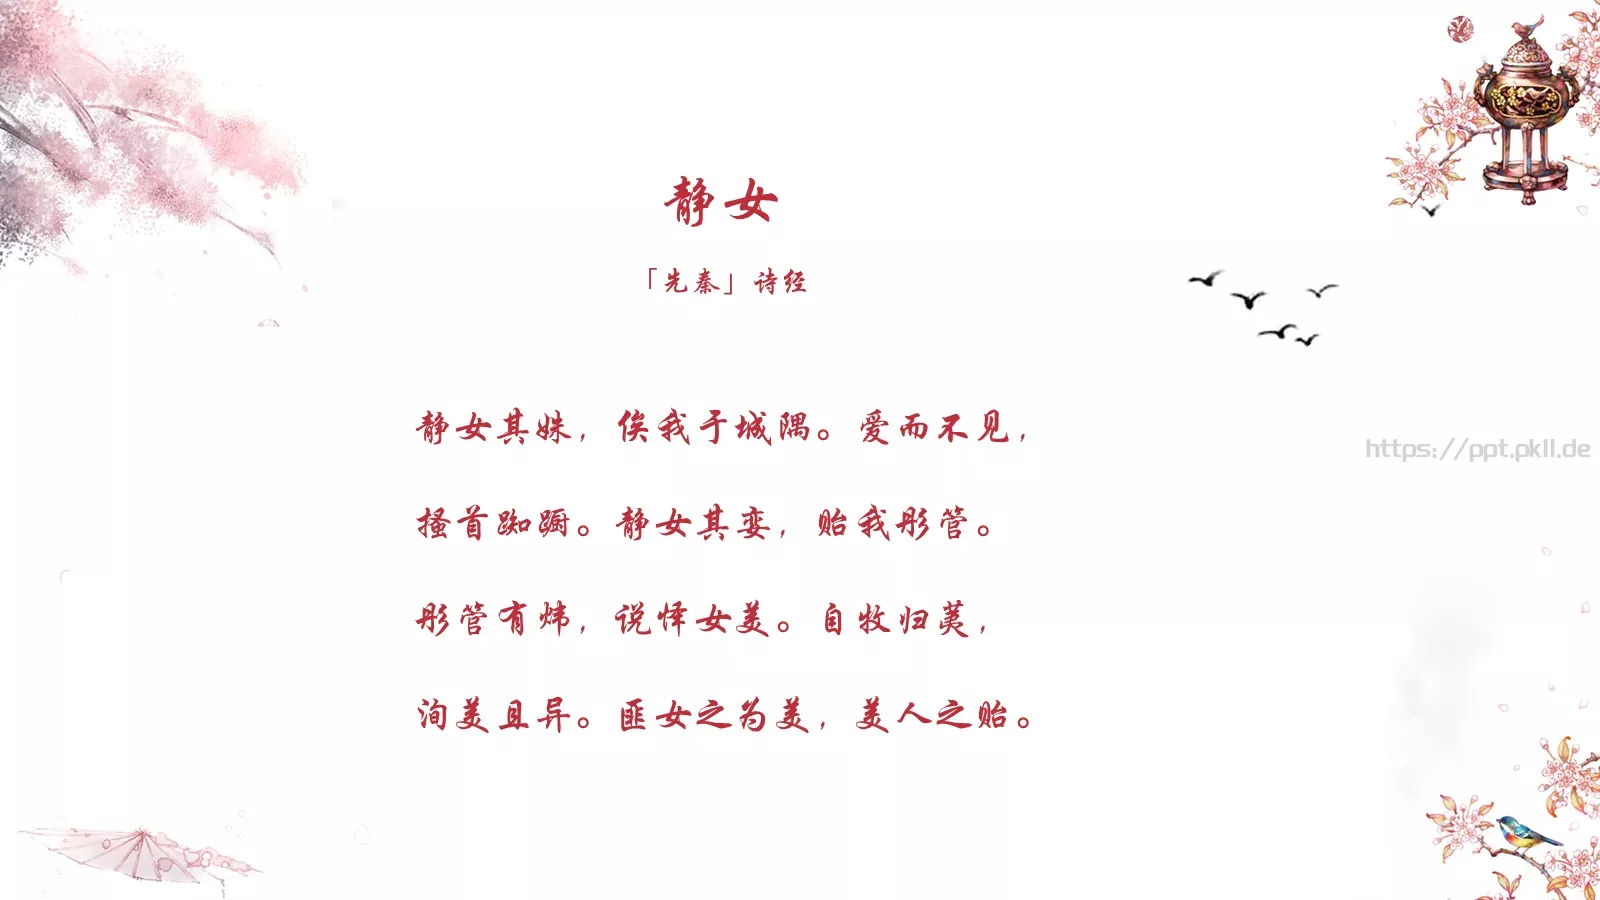 静女
「先秦」诗经
静女其姝，俟我于城隅。爱而不见，
搔首踟蹰。静女其娈，贻我彤管。
彤管有炜，说怿女美。自牧归荑，
洵美且异。匪女之为美，美人之贻。
https://ppt.pkll.de